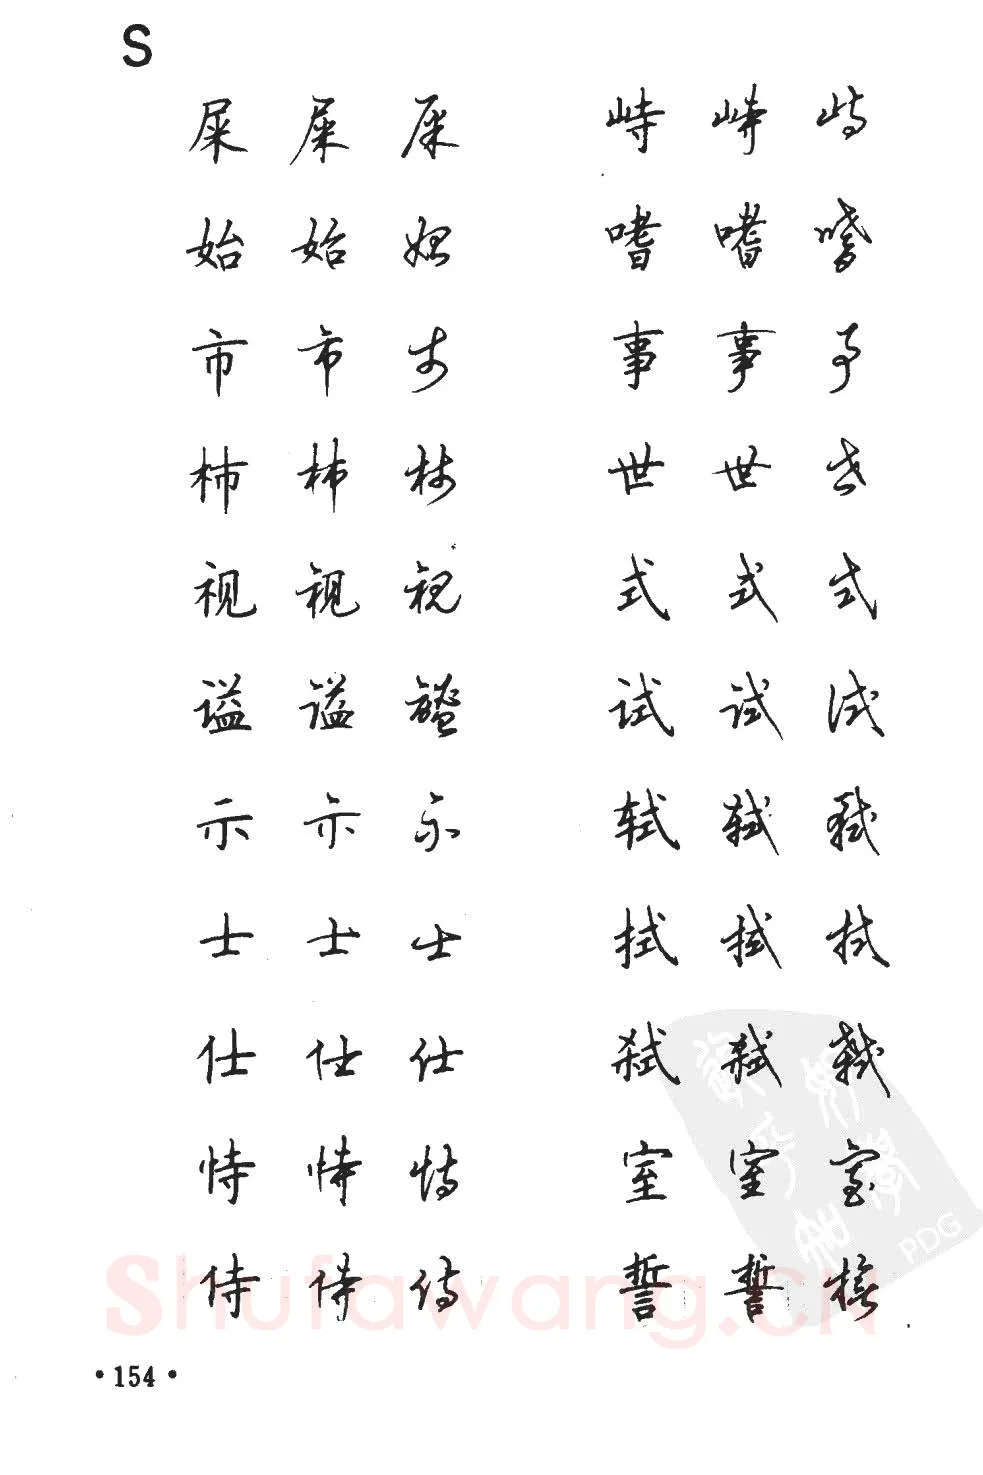 S
屎 屎 屎 峙 峙 峙
始 始 始 嗜 嗜 嗜
市 市 市 事 事 事
柿 柿 柿 世 世 世
视 视 视 式 式 式
谥 谥 谥 试 试 试
示 示 示 轼 轼 轼
士 士 士 拭 拭 拭
仕 仕 仕 弑 弑 弑
恃 恃 恃 室 室 室
侍 侍 侍 誓 誓 誓
Shufawang.CN
PDG
·154·